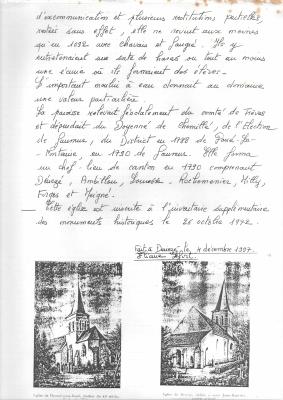 d'excommunication et plusieurs restitutions partielles
restées sans effet, elle ne revint aux moines
qu'en 1092 avec chavais et Saugré. Ils y
entretenaient une sorte de Prévas ou tout au moins
une cure où ils formaient des élèves.
L'important moulin à eau donnait au domaine
une valeur particulière.
La paroisse relevait féodalement du comté de Trèves
et dépendait du Doyenné de Chemillé, de l'Election
de Saumur, du District en 1788 de Doué-la-
Fontaine, en 1790 de Saumur. Elle forma
un chef-lieu de canton en 1790 comprenant
Dénezé, Ambillou, Louresse, Rochemenier, Milly,
Forges et Meigné.
Cette église est inscrite à l'inventaire supplémentaire
des monuments historiques le 26 octobre 1972.
Fait à Dénezé, le 4 décembre 1997.
Eglise de Dénezé-sous-Doué, clocher du XIe siècle.